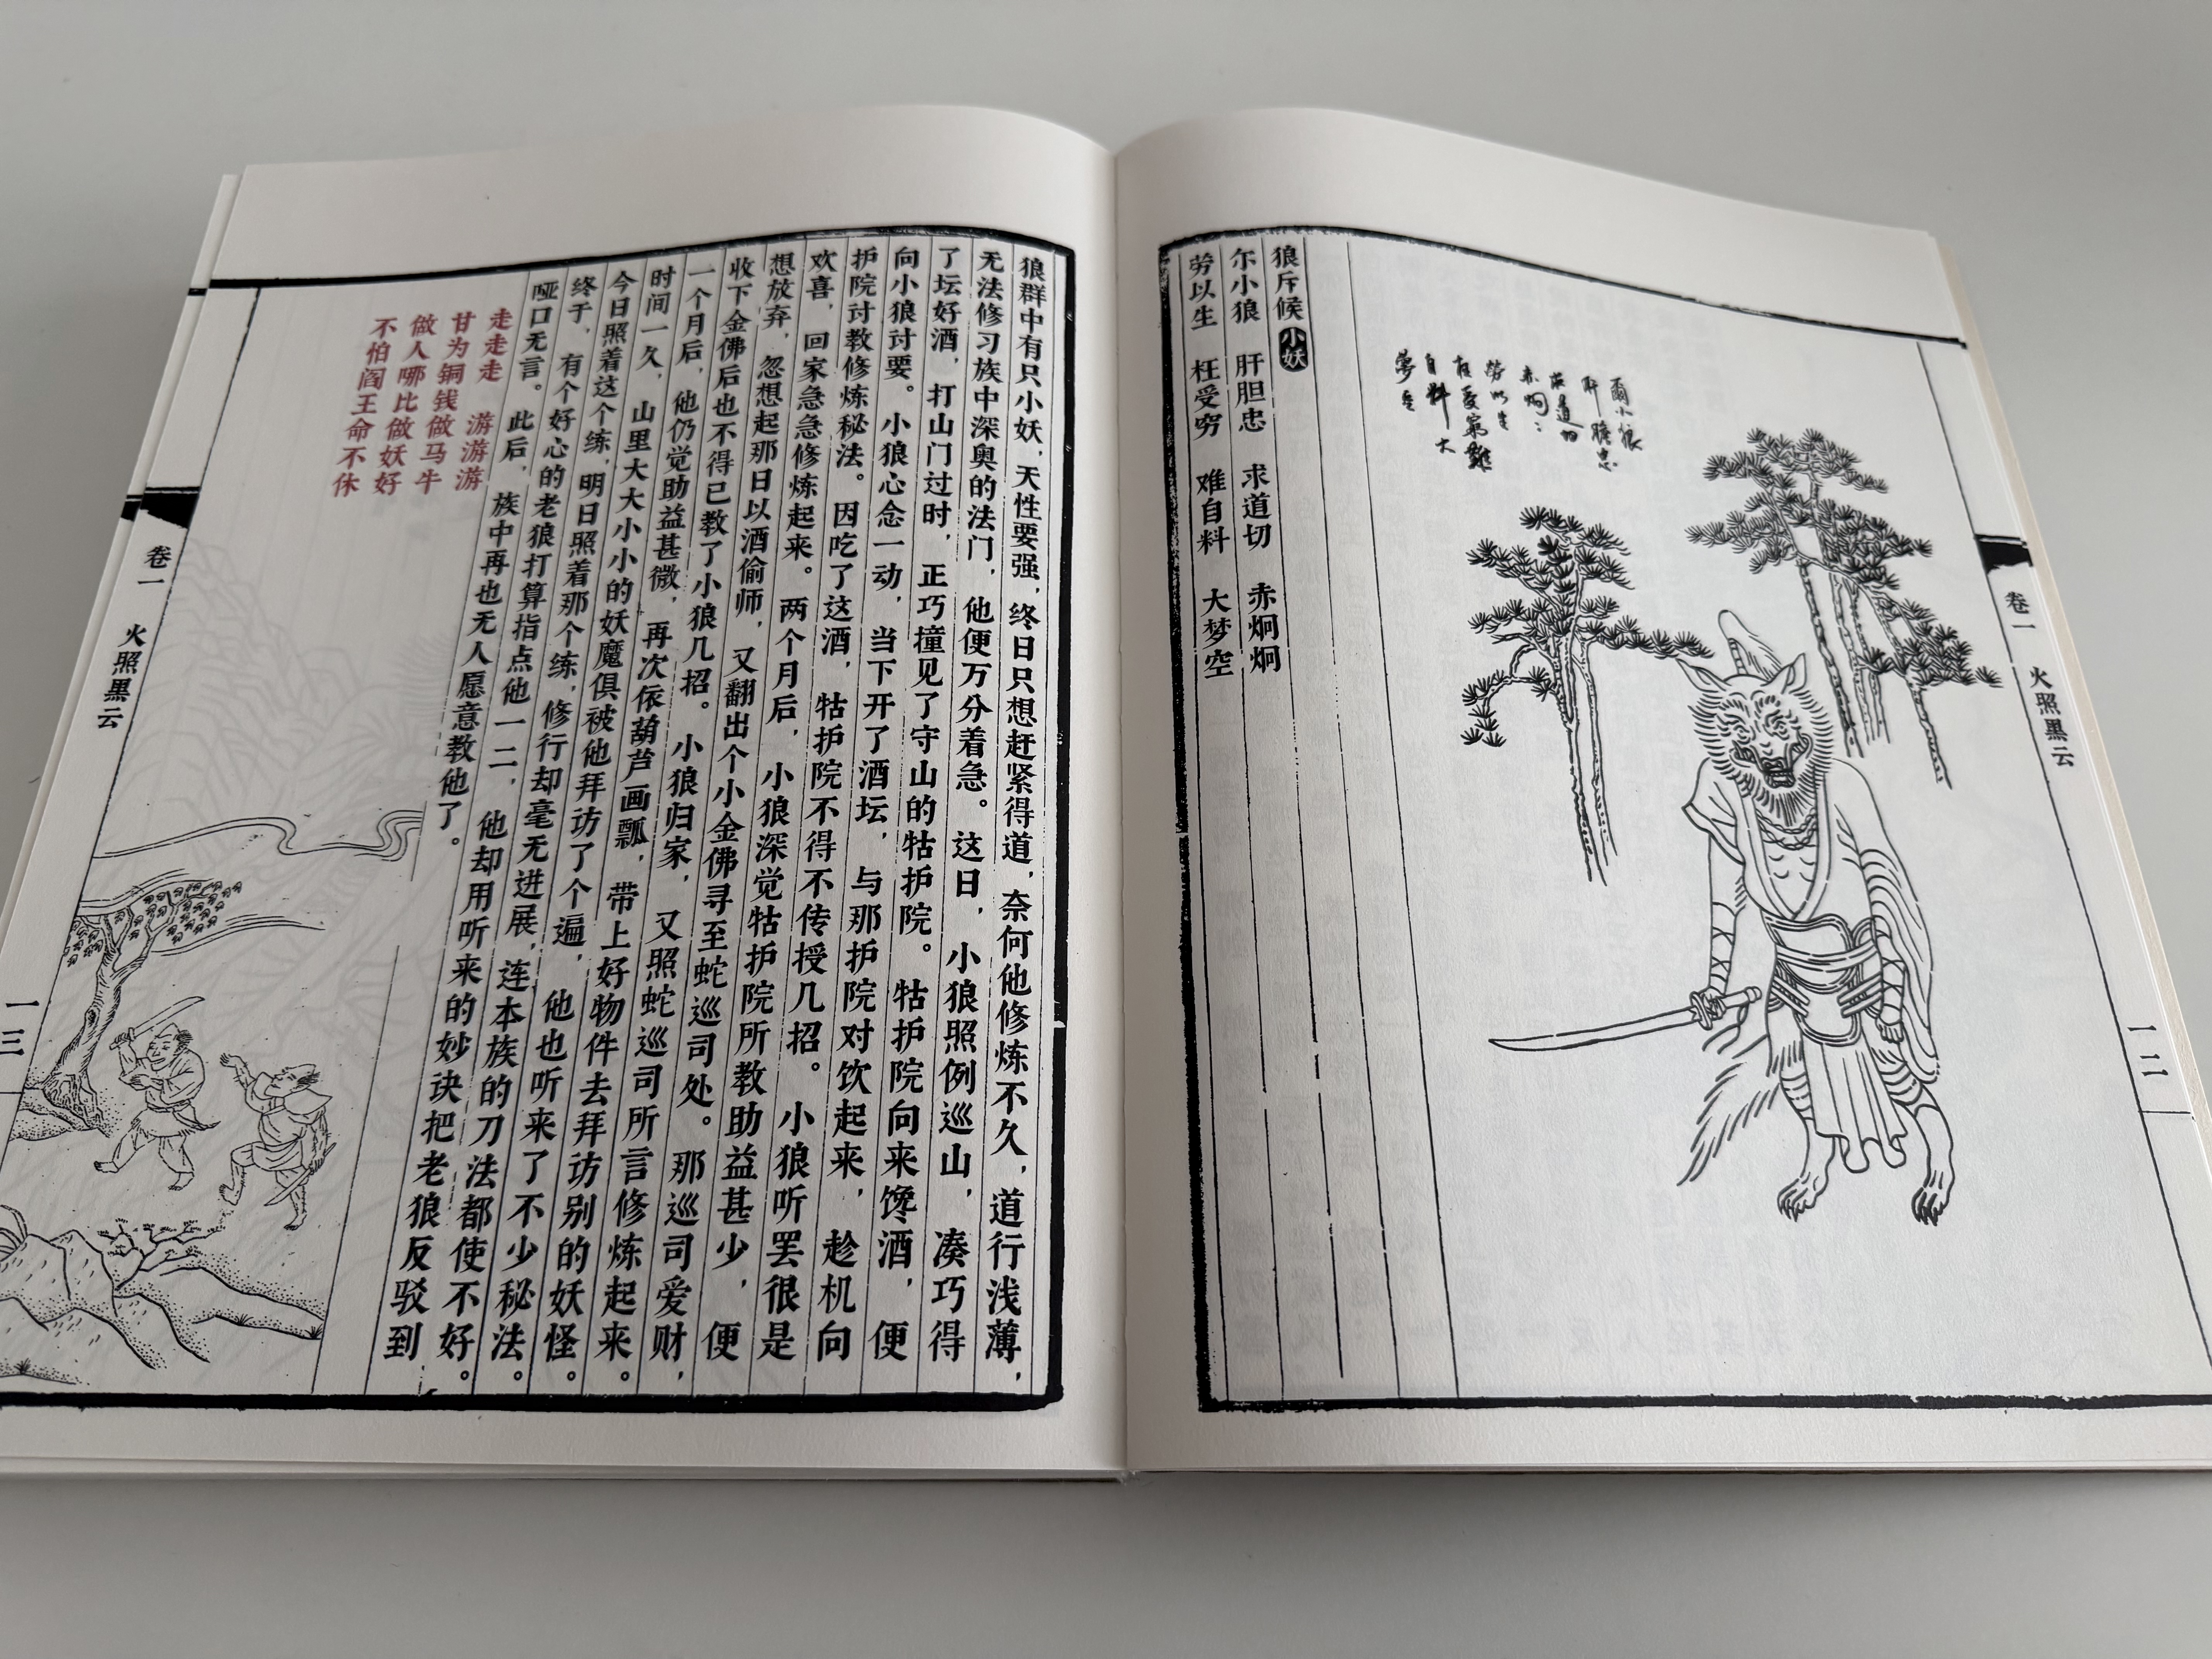 卷一 火照黑云
一二
爾小狼
肝膽忠
求道切
赤炯〻
勞以生
枉受窮難
自料大
夢空
狼斥候 小妖
尔小狼 肝胆忠 求道切 赤炯炯
劳以生 枉受穷 难自料 大梦空
狼群中有只小妖，天性要强，终日只想赶紧得道，奈何他修炼不久，道行浅薄，
无法修习族中深奥的法门，他便万分着急。这日，小狼照例巡山，凑巧得
了坛好酒，打山门过时，正巧撞见了守山的牯护院。牯护院向来馋酒，便
向小狼讨要。小狼心念一动，当下开了酒坛，与那护院对饮起来，趁机向
护院讨教修炼秘法。因吃了这酒，牯护院不得不传授几招。小狼听罢很是
欢喜，回家急急修炼起来。两个月后，小狼深觉牯护院所教助益甚少，便
想放弃，忽想起那日以酒偷师，又翻出个小金佛寻至蛇巡司处。那巡司爱财，
收下金佛后也不得已教了小狼几招。小狼归家，又照蛇巡司所言修炼起来。
一个月后，他仍觉助益甚微，再次依葫芦画瓢，带上好物件去拜访别的妖怪。
时间一久，山里大大小小的妖魔俱被他拜访了个遍，他也听来了不少秘法。
今日照着这个练，明日照着那个练，修行却毫无进展，连本族的刀法都使不好。
终于，有个好心的老狼打算指点他一二，他却用听来的妙诀把老狼反驳到
哑口无言。此后，族中再也无人愿意教他了。
走走走 游游游
甘为铜钱做马牛
做人哪比做妖好
不怕阎王命不休
卷一 火照黑云
一三